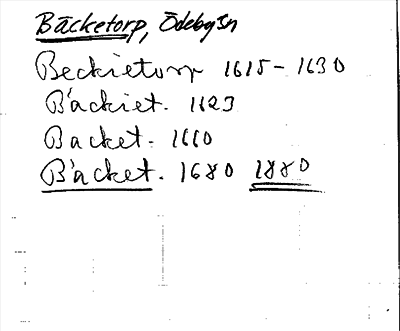 Bäcketorp, Ödeby sn
Beckietorp 1615-1630
Bäckiet. 1623
Backet. 1660
Bäcket. 1680 1880